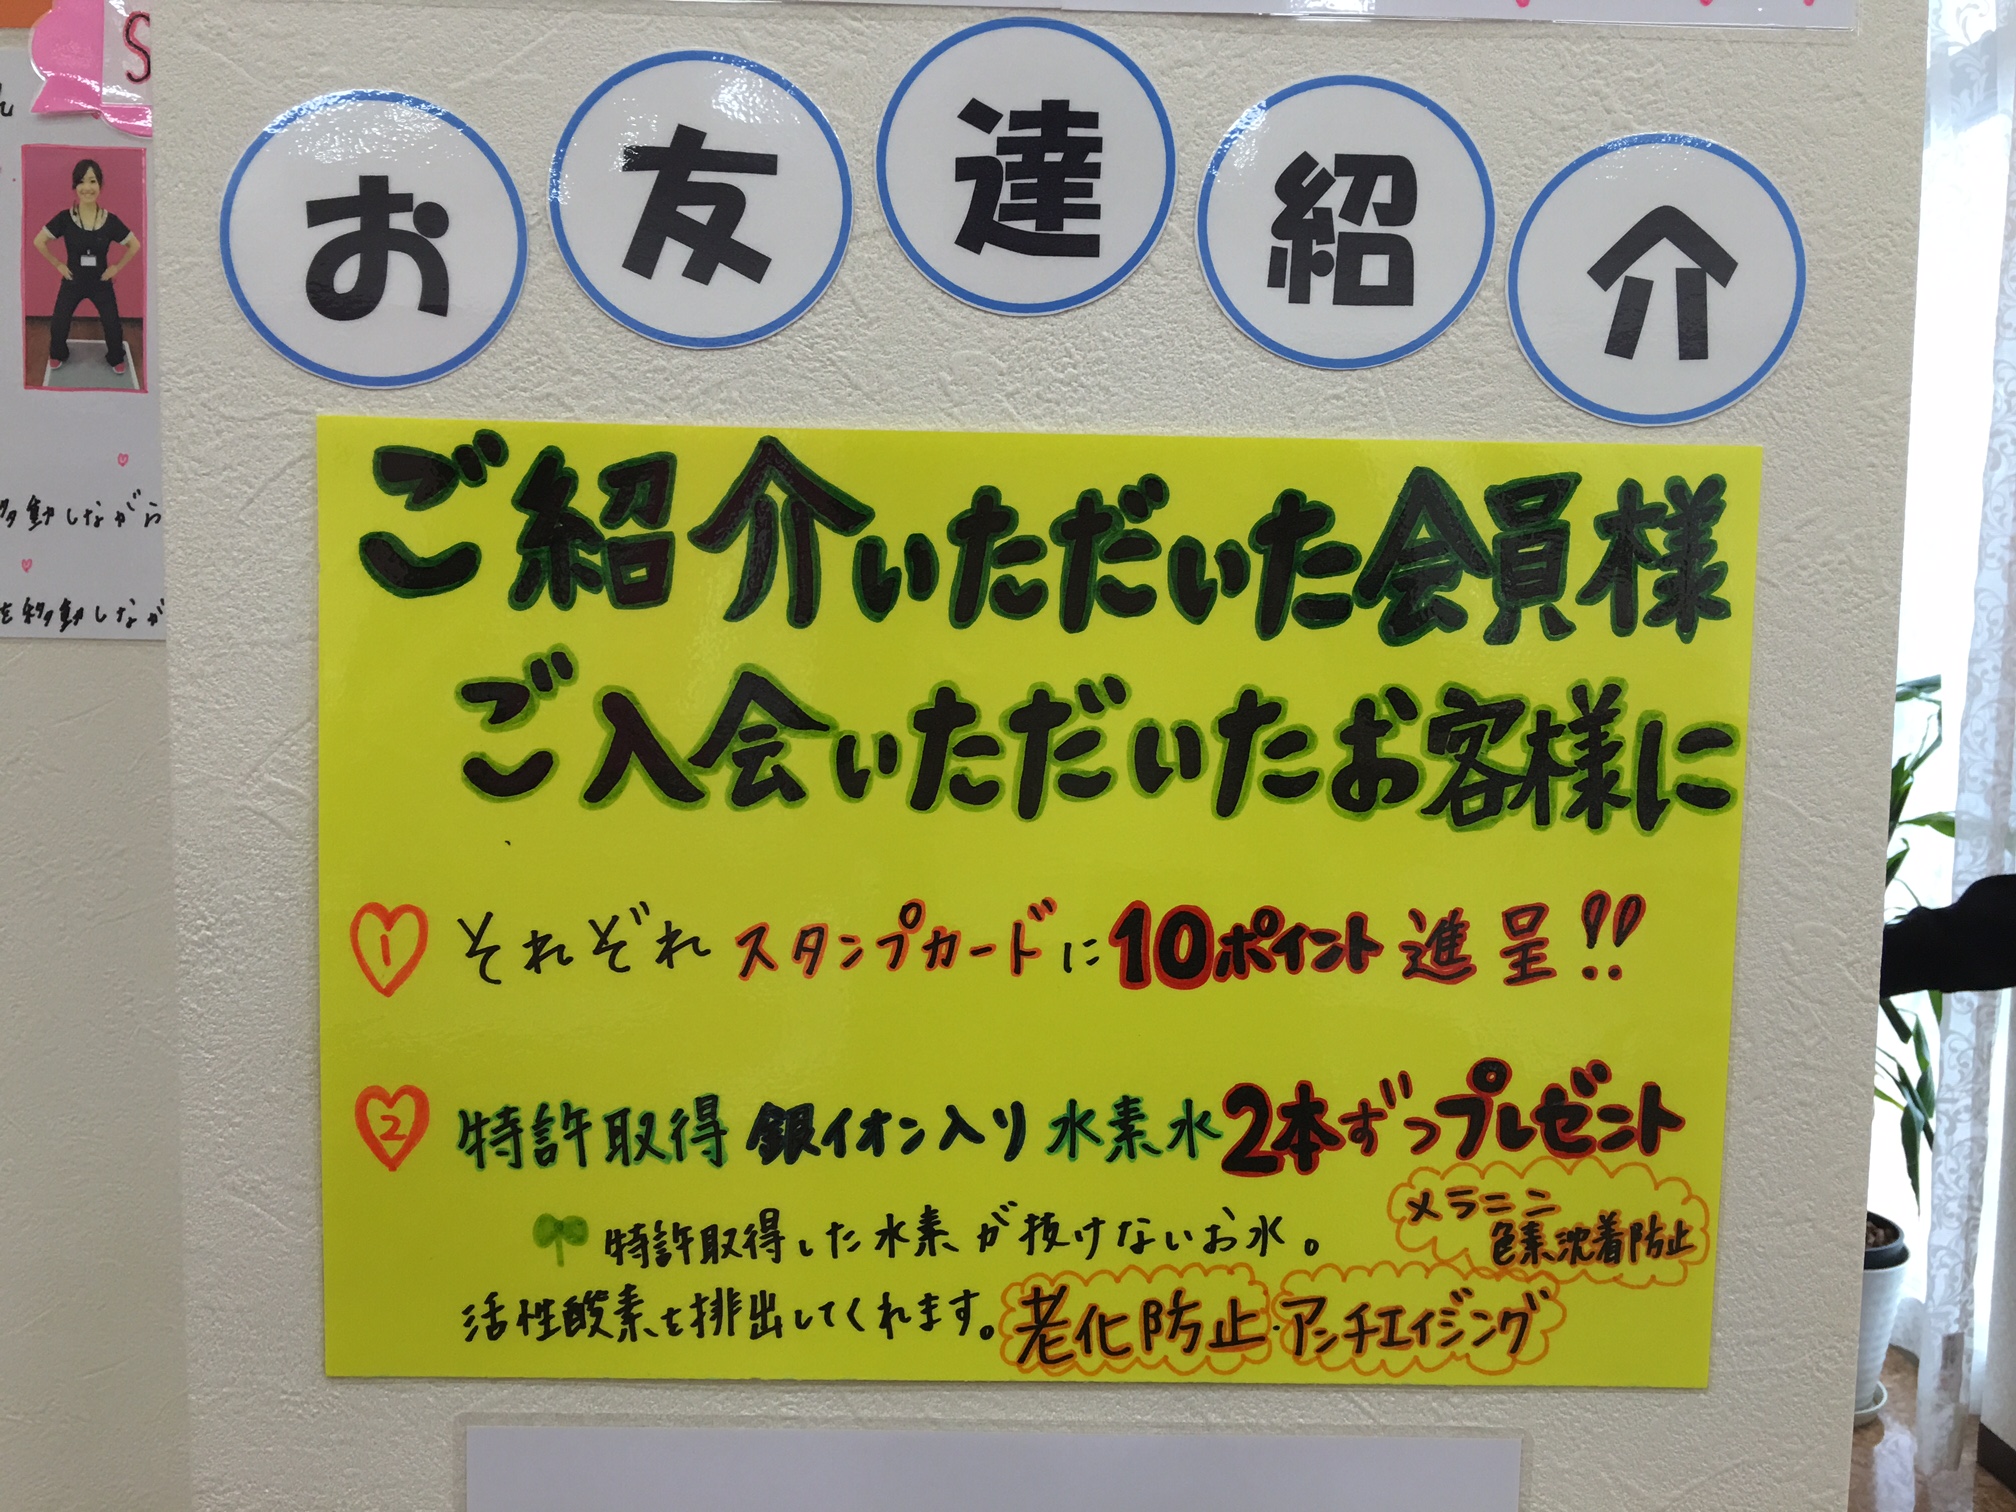 お友達紹介
ご紹介いただいた会員様
ご入会いただいたお客様に
1 それぞれスタンプカードに10ポイント進呈!!
2 特許取得 銀イオン入り 水素水2本ずつプレゼント
特許取得した水素が抜けないお水。
メラニン
色素沈着防止
活性酸素を排出してくれます。
老化防止・アンチエイジング
S
ん
移動しながら
を移動しなが